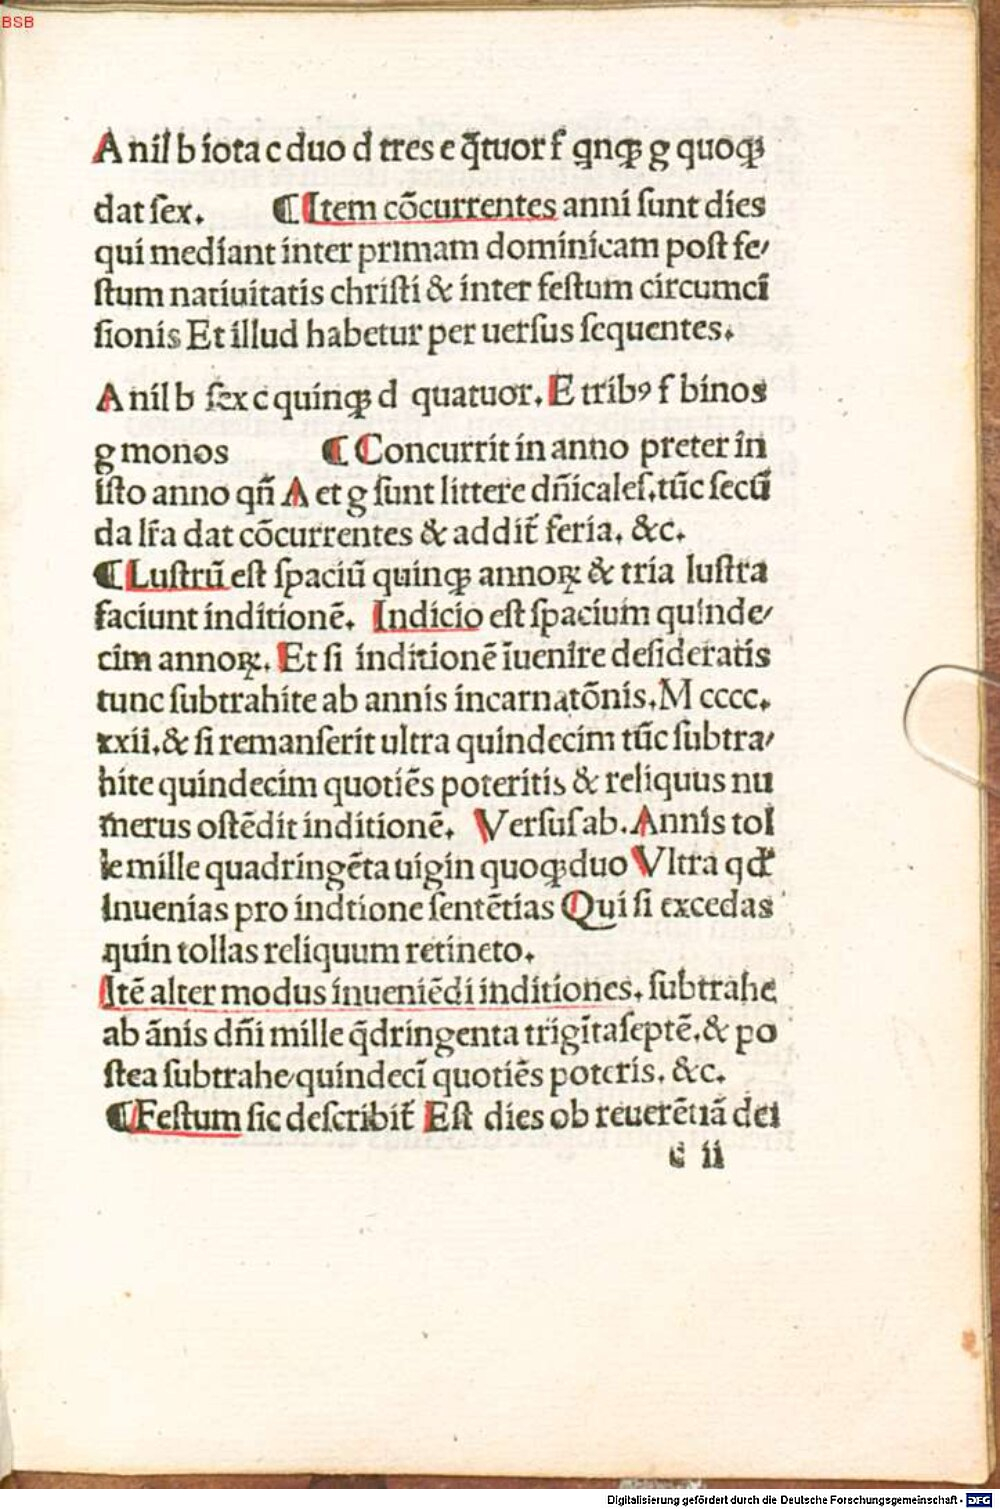 BSB
A nil b iota c duo d tres e q̄tuor f qnqꝫ g quoqꝫ
dat ſex. ¶ Item cōcurrentes anni ſunt dies
qui mediant inter primam dominicam poſt fe⸗
ſtum natiuitatis chriſti & inter feſtum circumcī
ſionis Et illud habetur per uerſus ſequentes.
A nil b ſex c quinqꝫ d quatuor. E tribꝰ f binos
g monos ¶ Concurrit in anno preter in
iſto anno qn̄ A et g ſunt littere dn̄icaleſ. tūc ſecū
da lr̄a dat cōcurrentes & addit̄ feria. &c.
¶ Luſtrū eſt ſpaciū quinqꝫ annoꝝ & tria luſtra
faciunt inditionē. Indicio eſt ſpacium quinde⸗
cim annoꝝ. Et ſi inditionē īuenire deſideratis
tunc ſubtrahite ab annis incarnatōnis. M cccc.
xxii. & ſi remanſerit ultra quindecim tūc ſubtra⸗
hite quindecim quotiēs poteritis & reliquus nu
merus oſtēdit inditionē. Verſuſ ab. Annis tol
le mille quadringēta uigin quoqꝫ duo Vltra qd̓
inuenias pro indtione ſentētias Qui ſi excedas
quin tollas reliquum retineto.
Itē alter modus inueniēdi inditiones. ſubtrahe
ab ānis dn̄i mille q̄dringenta trigītaſeptē. & po
ſtea ſubtrahe quindecī quotiēs poteris. &c.
¶ Feſtum ſic deſcribit̄ Eſt dies ob reuerētiā dei
c ii
Digitalisierung gefördert durch die Deutsche Forschungsgemeinschaft - DFG